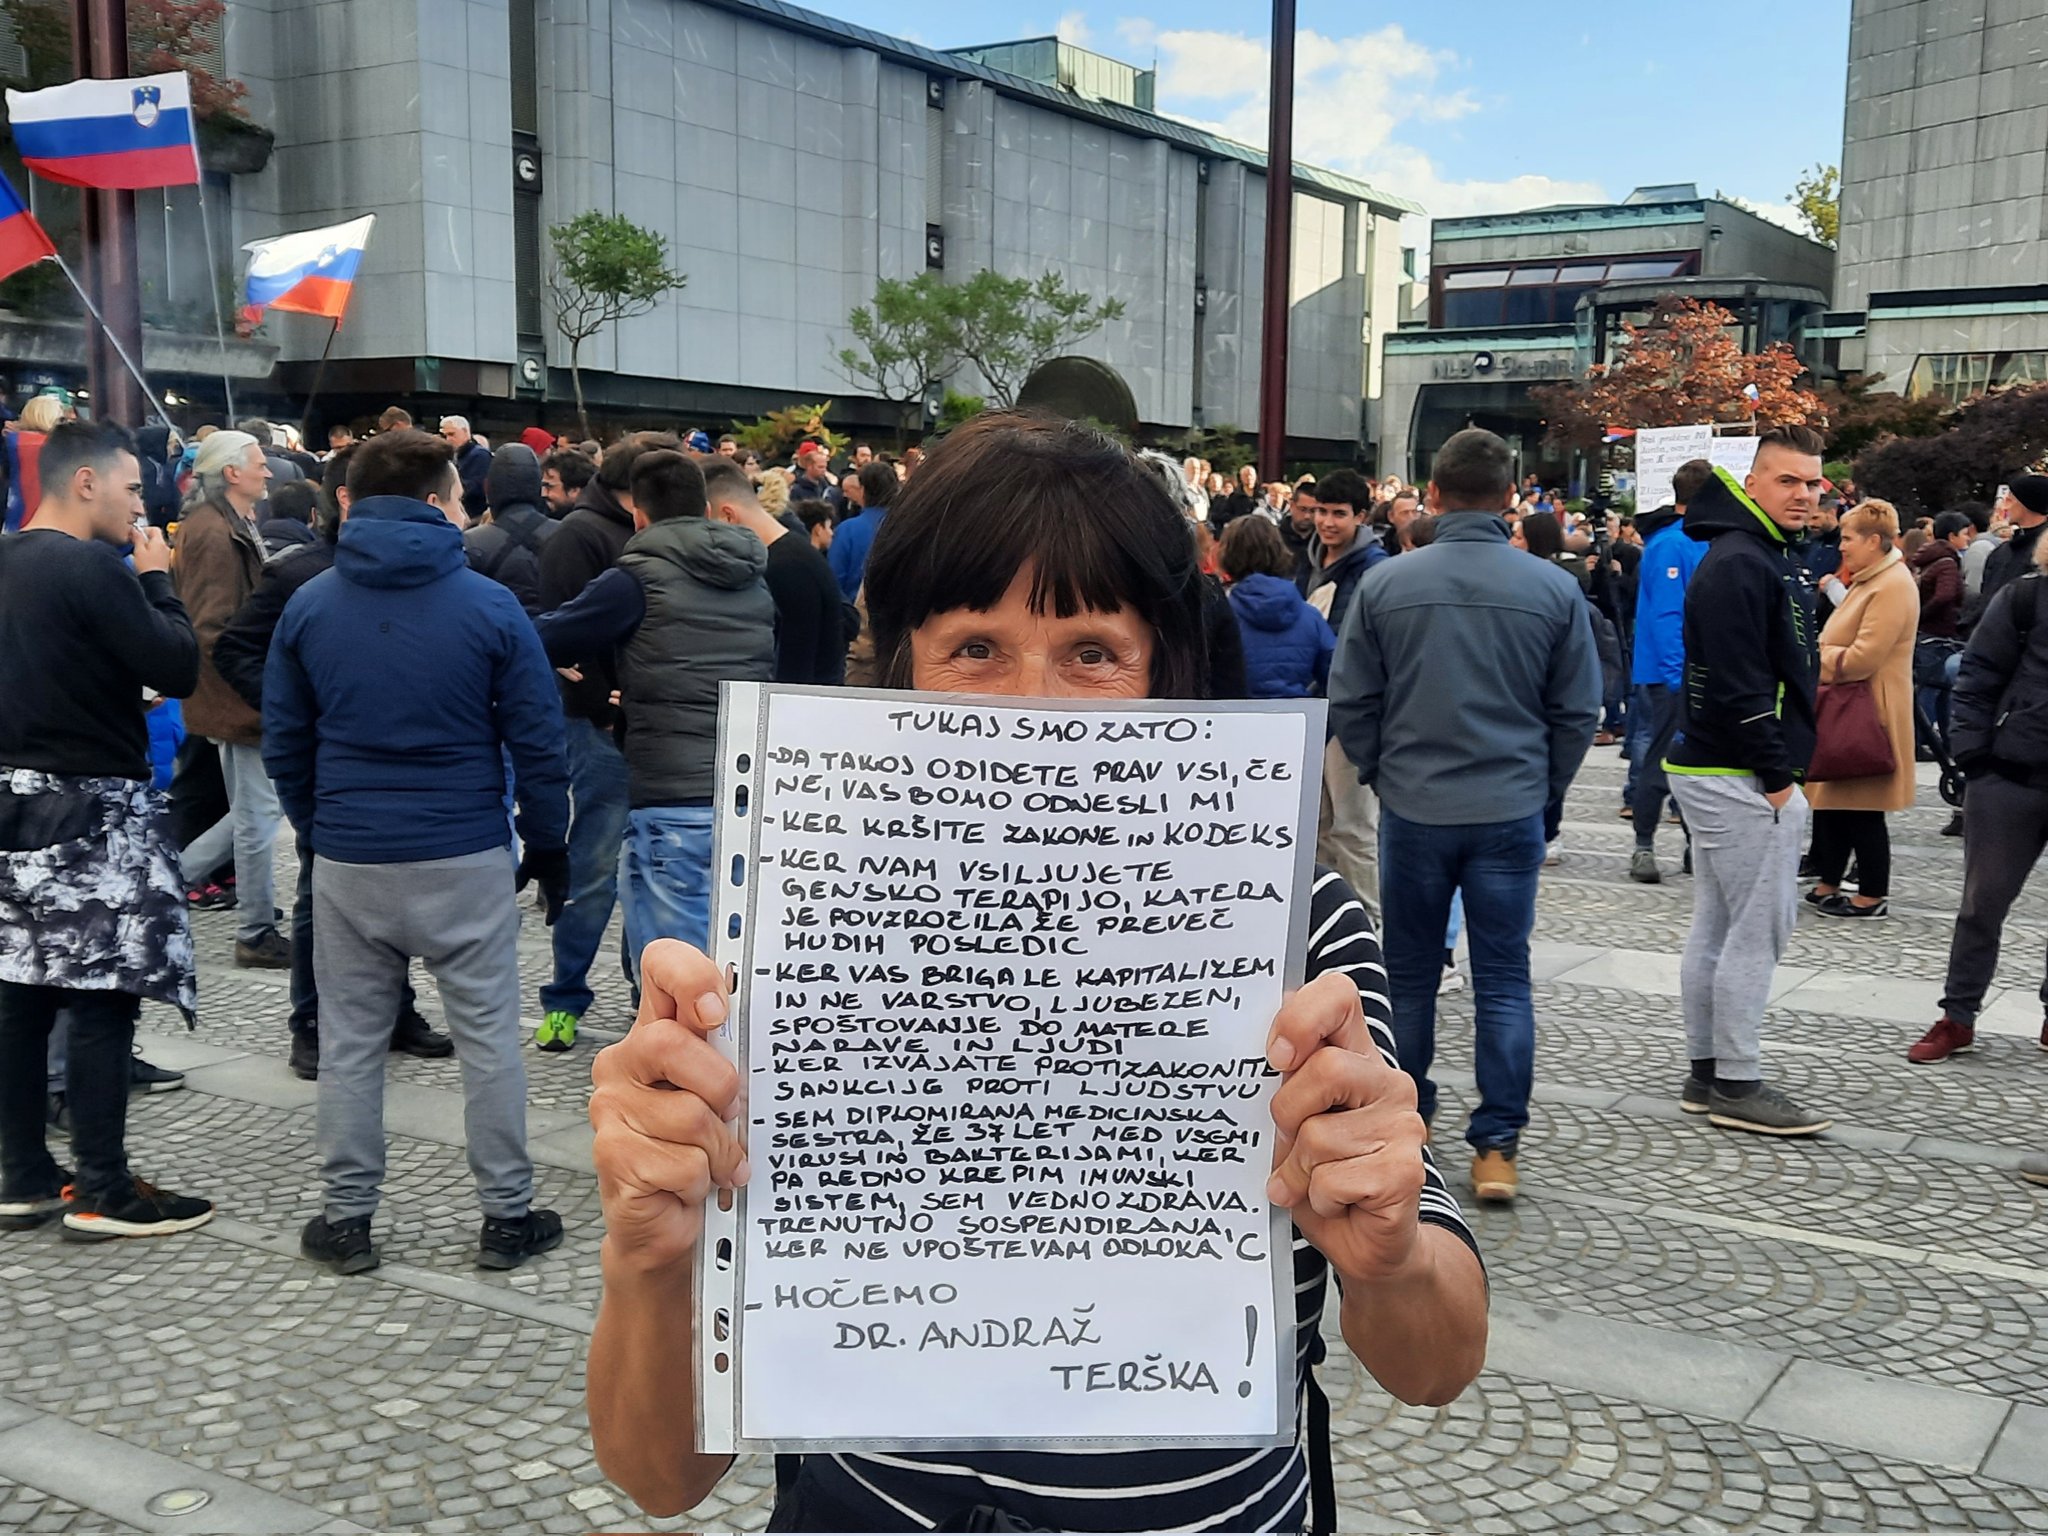 NLB Skupina
PCT = NE!
TUKAJ SMO ZATO:
- DA TAKOJ ODIDETE PRAV VSI, ČE
NE, VAS BOMO ODNESLI MI
- KER KRŠITE ZAKONE IN KODEKS
- KER NAM VSILJUJETE
GENSKO TERAPIJO, KATERA
JE POVZROČILA ŽE PREVEČ
HUDIH POSLEDIC
- KER VAS BRIGA LE KAPITALIZEM
IN NE VARSTVO, LJUBEZEN,
SPOŠTOVANJE DO MATERE
NARAVE IN LJUDI
- KER IZVAJATE PROTIZAKONITE
SANKCIJE PROTI LJUDSTVU
- SEM DIPLOMIRANA MEDICINSKA
SESTRA, ŽE 37 LET MED VSEMI
VIRUSI IN BAKTERIJAMI, KER
PA REDNO KREPIM IMUNSKI
SISTEM, SEM VEDNO ZDRAVA.
TRENUTNO SOSPENDIRANA,
KER NE UPOŠTEVAM ODLOKA 'C
- HOČEMO
DR. ANDRAŽ
TERŠKA!